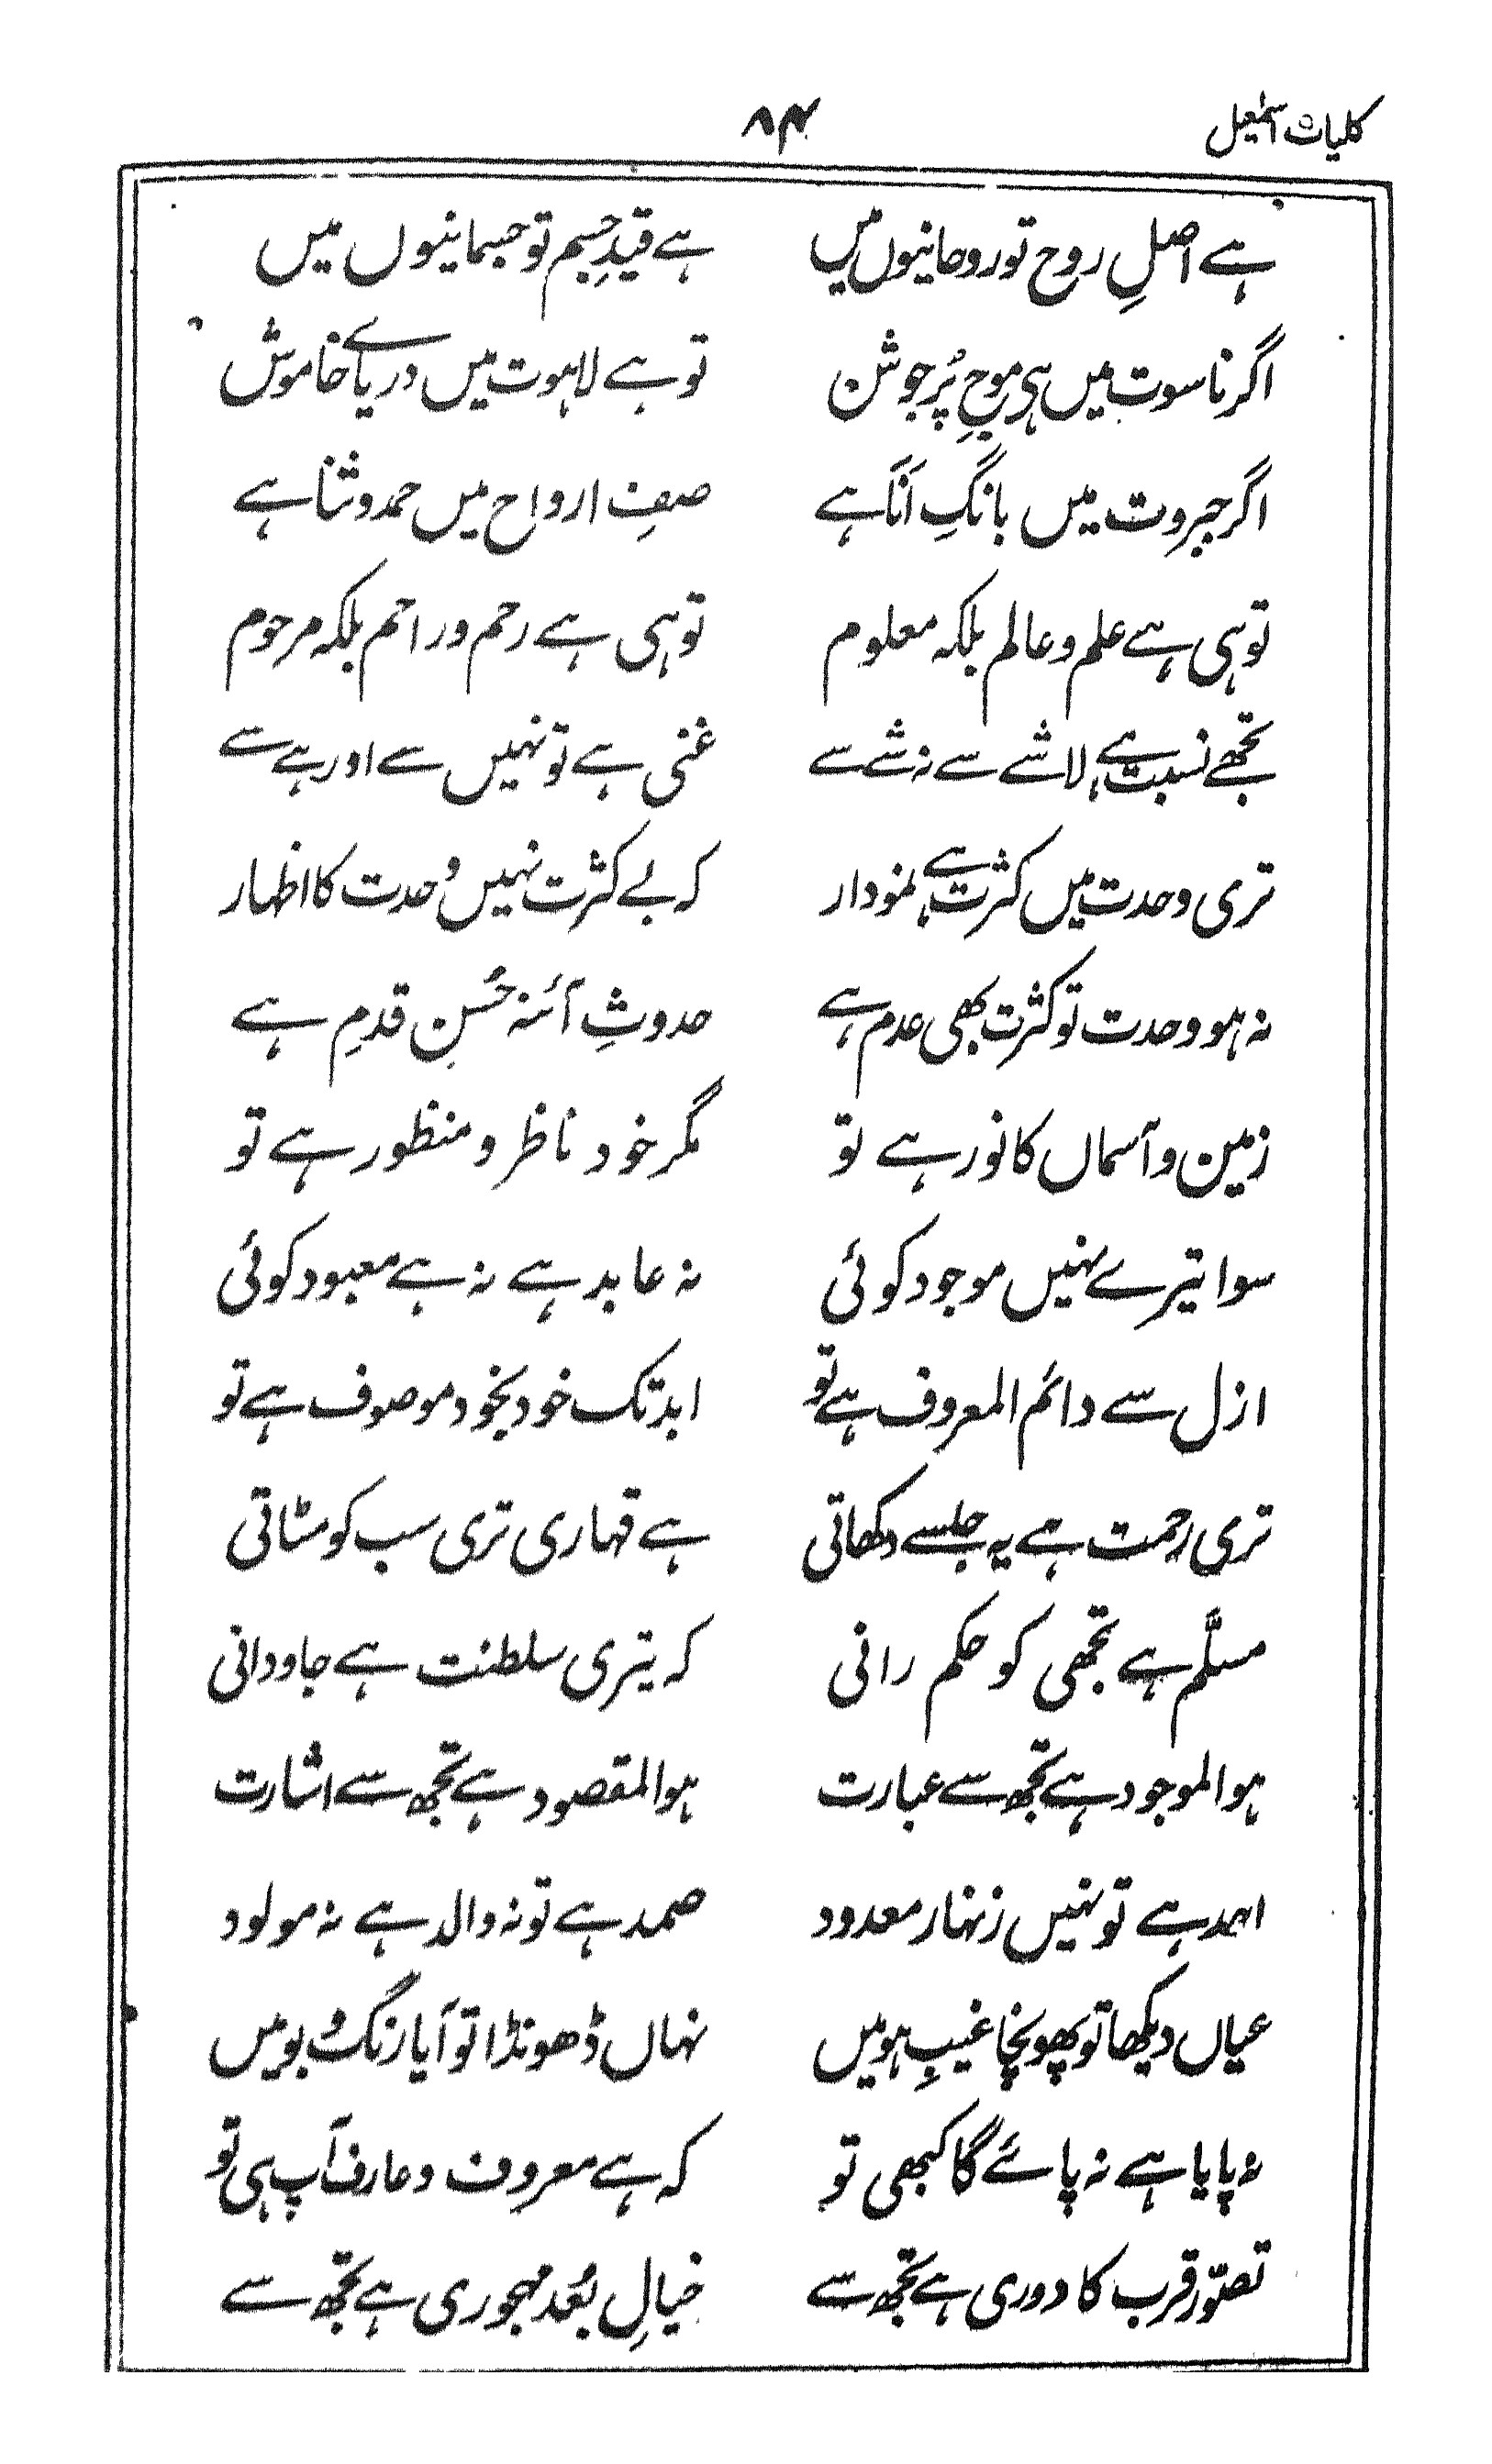 کلیات اسمٰعیل ۸۴
ہے اصلِ روح تو روحانیوں میں ہے قیدِ جسم تو جسمانیوں میں
اگر ناسوت میں ہی موجِ پُر جوش تو ہے لاہوت میں دریاے خاموش
اگر جبروت میں بانگِ اَنَا ہے صفِ ارواح میں حمد و ثنا ہے
تو ہی ہے علم و عالم بلکہ معلوم تو ہی ہے رحم و راحم بلکہ مرحوم
تجھے نسبت ہے لاشے سے نہ شے سے غنی ہے تو نہیں سے اور ہے سے
تری وحدت میں کثرت ہے نمودار کہ بے کثرت نہیں وحدت کا اظہار
نہ ہو وحدت تو کثرت بھی عدم ہے حدوثِ آئنہ حُسنِ قدم ہے
زمین و آسماں کا نور ہے تو مگر خود ناظر و منظور ہے تو
سوا تیرے نہیں موجود کوئی نہ عابد ہے نہ ہے معبود کوئی
ازل سے دائم المعروف ہے تو ابد تک خود بخود موصوف ہے تو
تری رحمت ہے یہ جلسے دکھاتی ہے قہاری تری سب کو مٹاتی
مسلَّم ہے تجھی کو حکم رانی کہ تیری سلطنت ہے جاودانی
ہوالموجود ہے تجھ سے عبارت ہوالمقصود ہے تجھ سے اشارت
احد ہے تو نہیں زنہار معدود صمد ہے تو نہ والد ہے نہ مولود
عیاں دیکھا تو پھونچا غیبِ ہو میں نہاں ڈھونڈا تو آیا رنگ و بو میں
نہ پایا ہے نہ پائے گا کبھی تو کہ ہے معروف و عارف آپ ہی تو
تصوّر قرب کا دوری ہے تجھ سے خیالِ بُعد مہجوری ہے تجھ سے